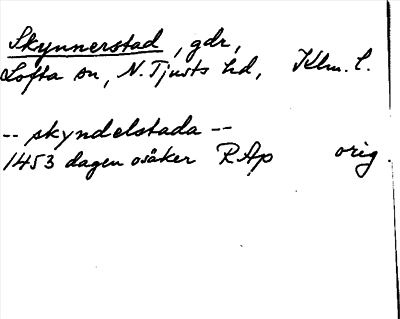 Skynnerstad, gdr,
Lofta sn, N. Tjusts hd, Klm. l.
-- skyndelstada --
1453 dagen osäker RAp orig.